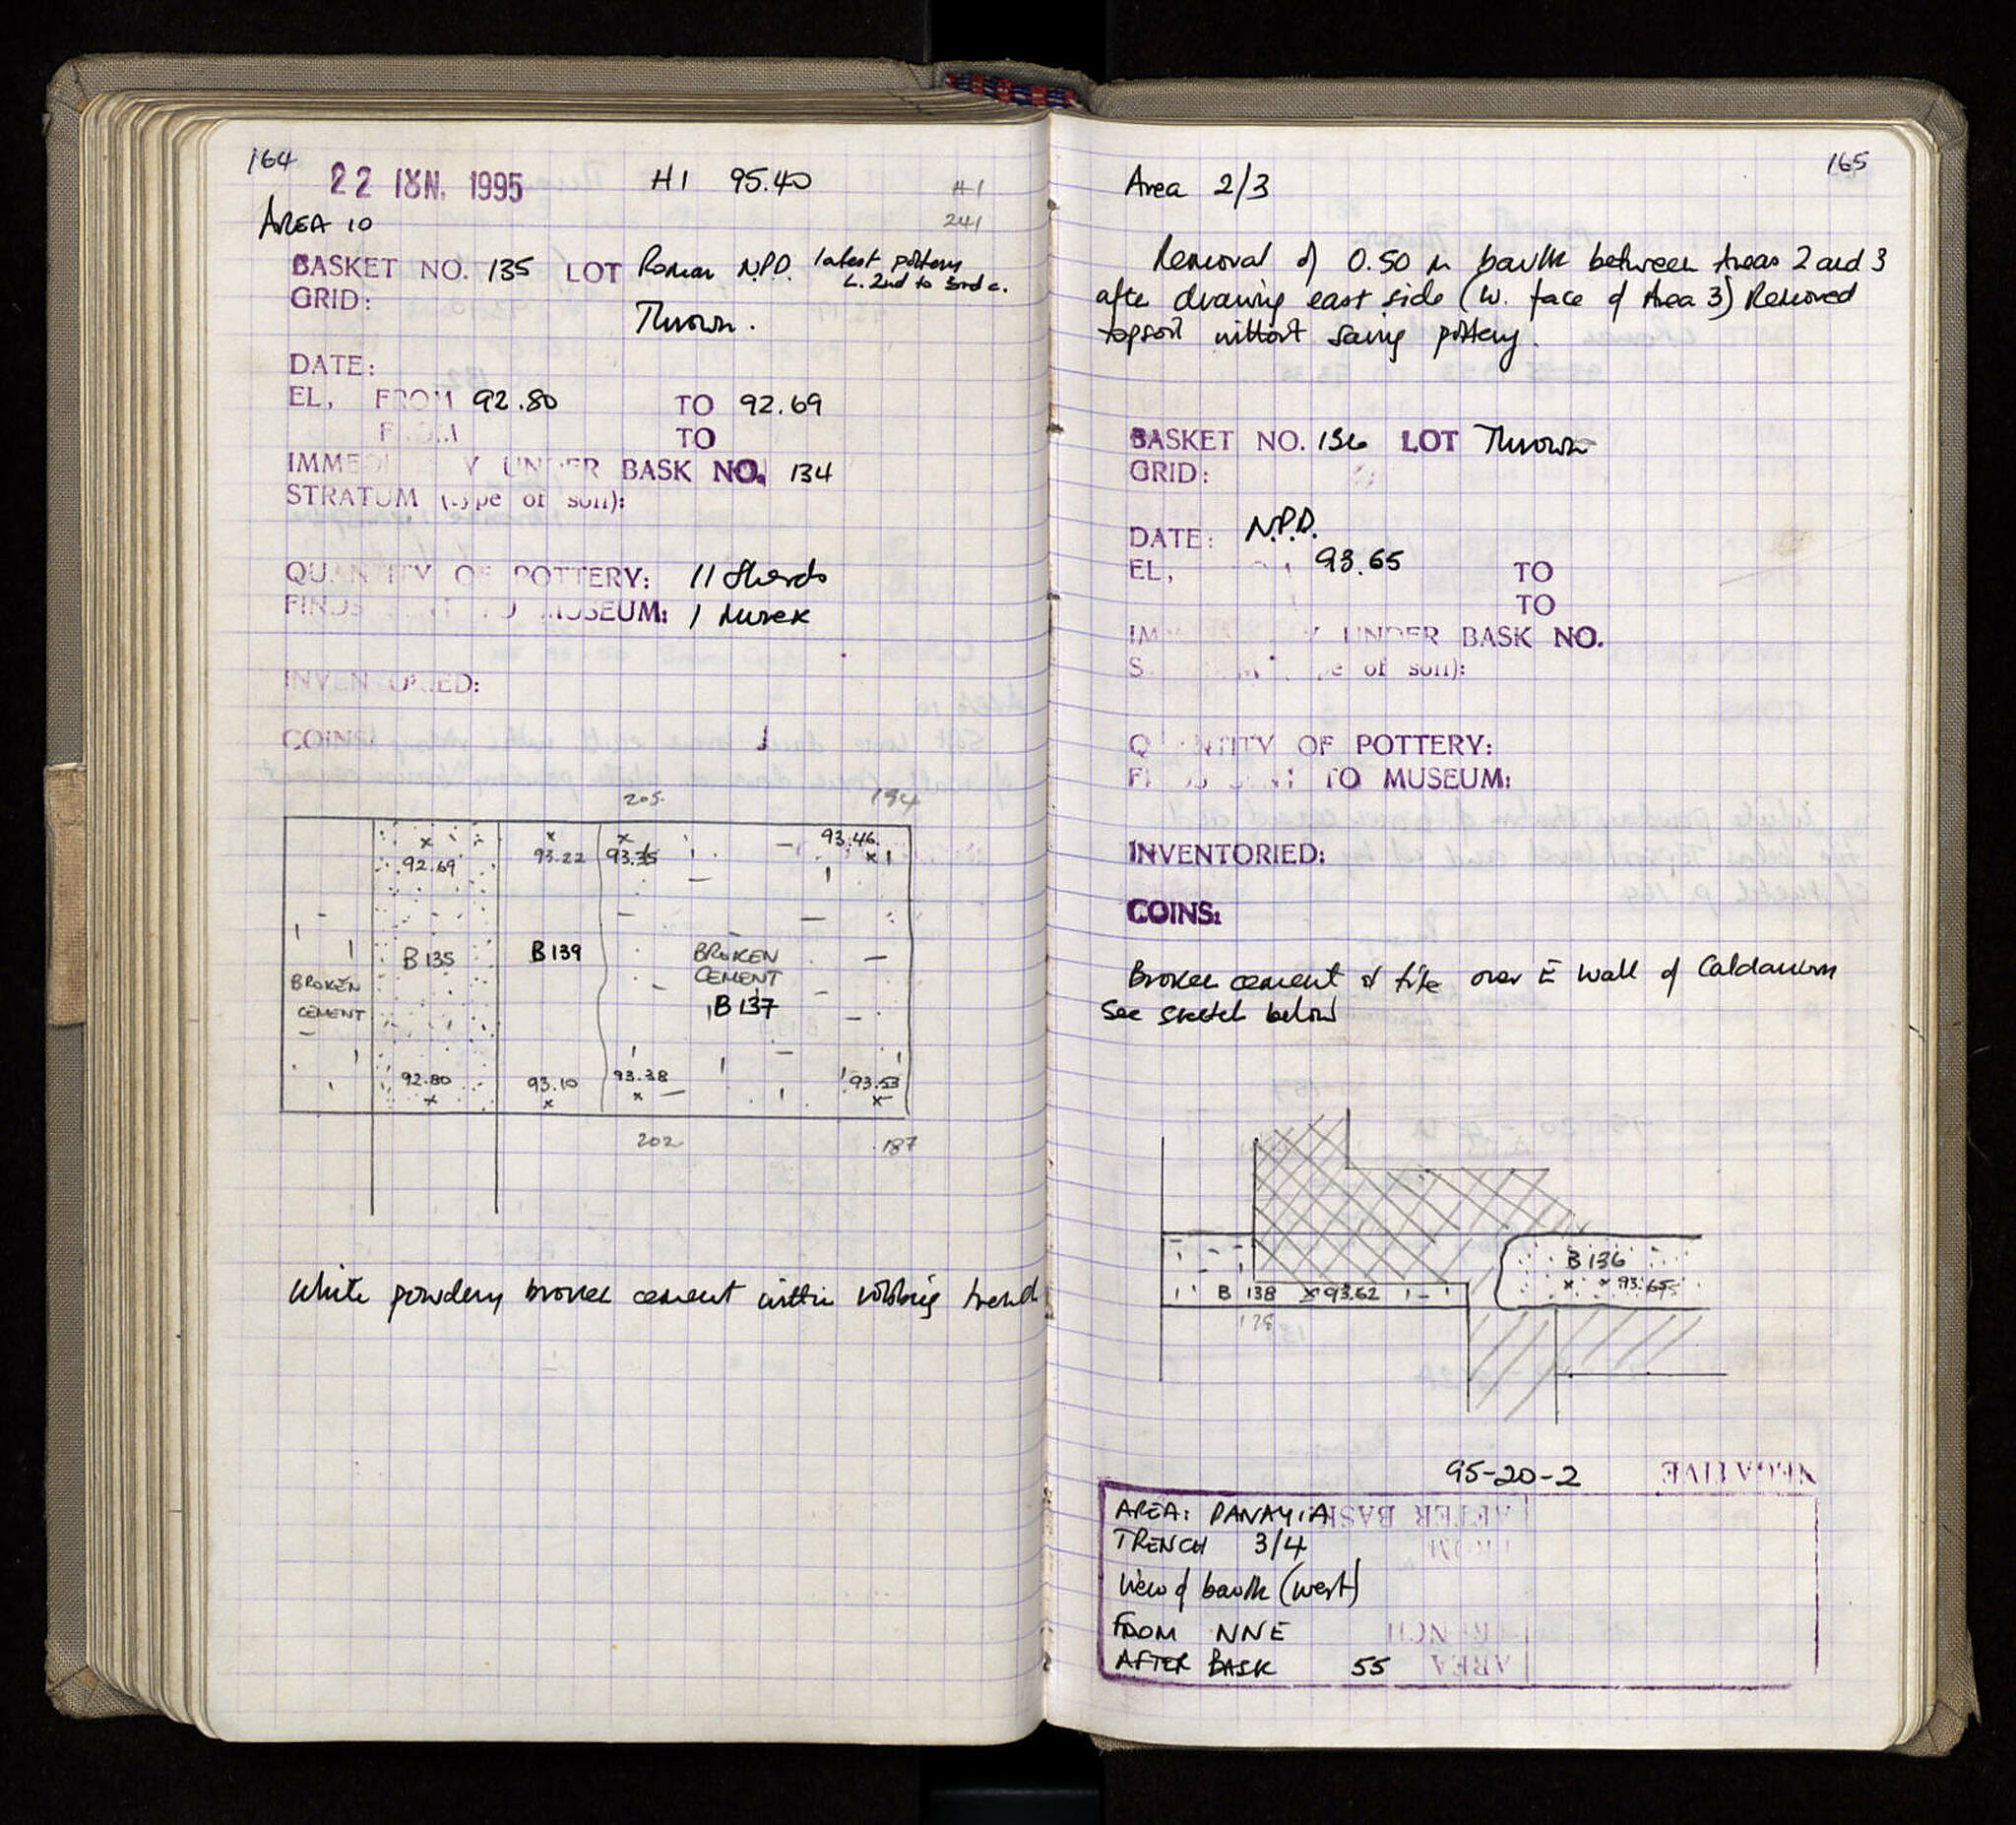 164
22 IUN. 1995
HI 95.40
HI
241
AREA 10
BASKET NO. 135 LOT Roman N.P.D. latest pottery
L. 2nd to 3rd c.
GRID:
Thrown.
DATE:
EL, FROM 92.80 TO 92.69
FROM TO
UNDER BASK NO. 134
STRATUM (type of soil):
QUANTITY OF POTTERY: 11 Sherds
MUSEUM: 1 Murex
INVENTORIED:
COINS:
205 194
92.69 93.22 93.35 93.46
B 135 B 139 BROKEN
CEMENT
B 137
BROKEN
CEMENT
92.80 93.10 93.38 93.53
202 187
White powdery broken cement within robbing trench
165
Area 2/3
Removal of 0.50 m baulk between Areas 2 and 3
after drawing east side (W. face of Area 3) Removed
topsoil without saving pottery.
BASKET NO. 136 LOT Thrown
GRID:
DATE: N.P.D.
EL, 93.65 TO
TO
UNDER BASK NO.
of soil):
QUANTITY OF POTTERY:
TO MUSEUM:
INVENTORIED:
COINS:
Broken cement & tile over E wall of Caldarium
See sketch below
B 136
93.65
B 138 93.62
178
95-20-2
NEGATIVE
AREA: PANAYIA
AFTER BASK
TRENCH 3/4
FROM
View of baulk (west)
FROM NNE
TRENCH
AFTER BASK 55
AREA